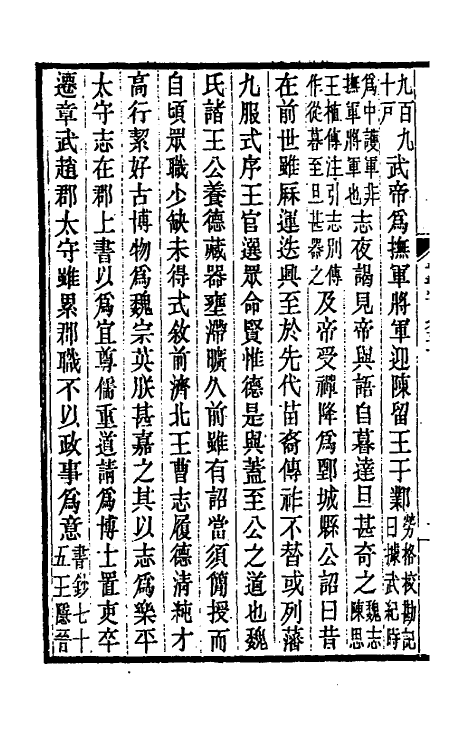 九百九十戸武帝爲撫軍將軍迎陳留王于鄴勞格校勘記曰據武紀時
爲中護軍非撫軍將軍也志夜謁見帝與語自暮達旦甚奇之魏志陳思
王植傳注引志別傳作從暮至旦甚器之及帝受禪降爲鄄城縣公詔曰昔
在前世雖厤運迭興至於先代苗裔傳祚不替或列藩
九服式序王官選眾命賢惟德是與蓋至公之道也魏
氏諸王公養德藏器壅滯曠久前雖有詔當須簡授而
自頃眾職少缺未得式敘前濟北王曹志履德清純才
高行絜好古博物爲魏宗英朕甚嘉之其以志爲樂平
太守志在郡上書以爲宜尊儒重道請爲博士置吏卒
遷章武趙郡太守雖累郡職不以政事爲意書鈔七十五王隱晉